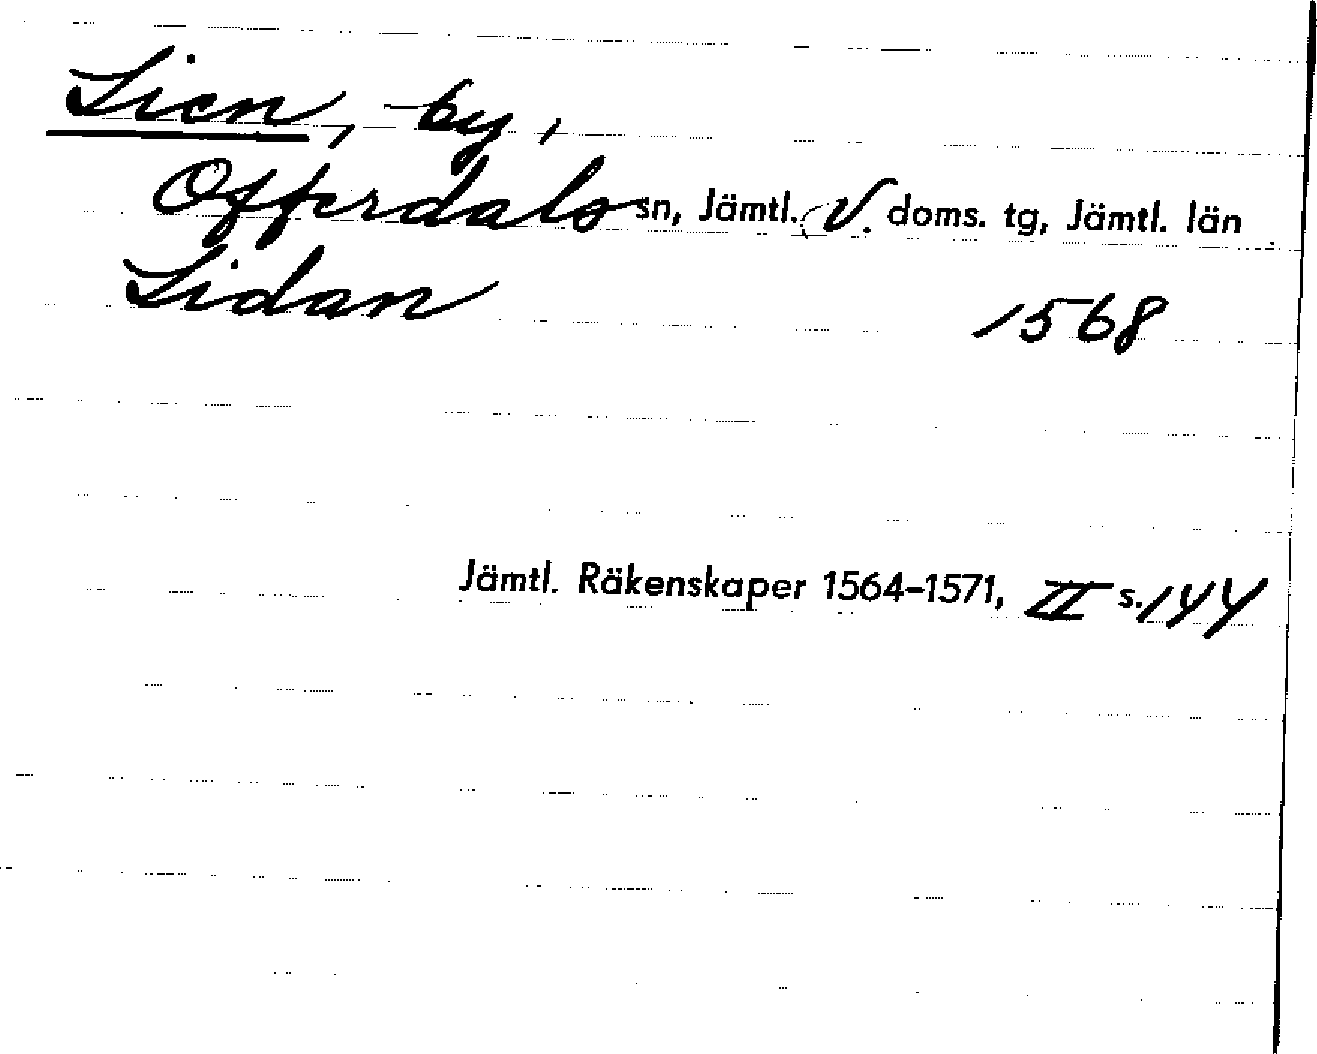 Lien, by,
Offerdals sn, Jämtl. V. doms. tg, Jämtl. län
Lidan 1568
Jämtl. Räkenskaper 1564-1571, II s. 144